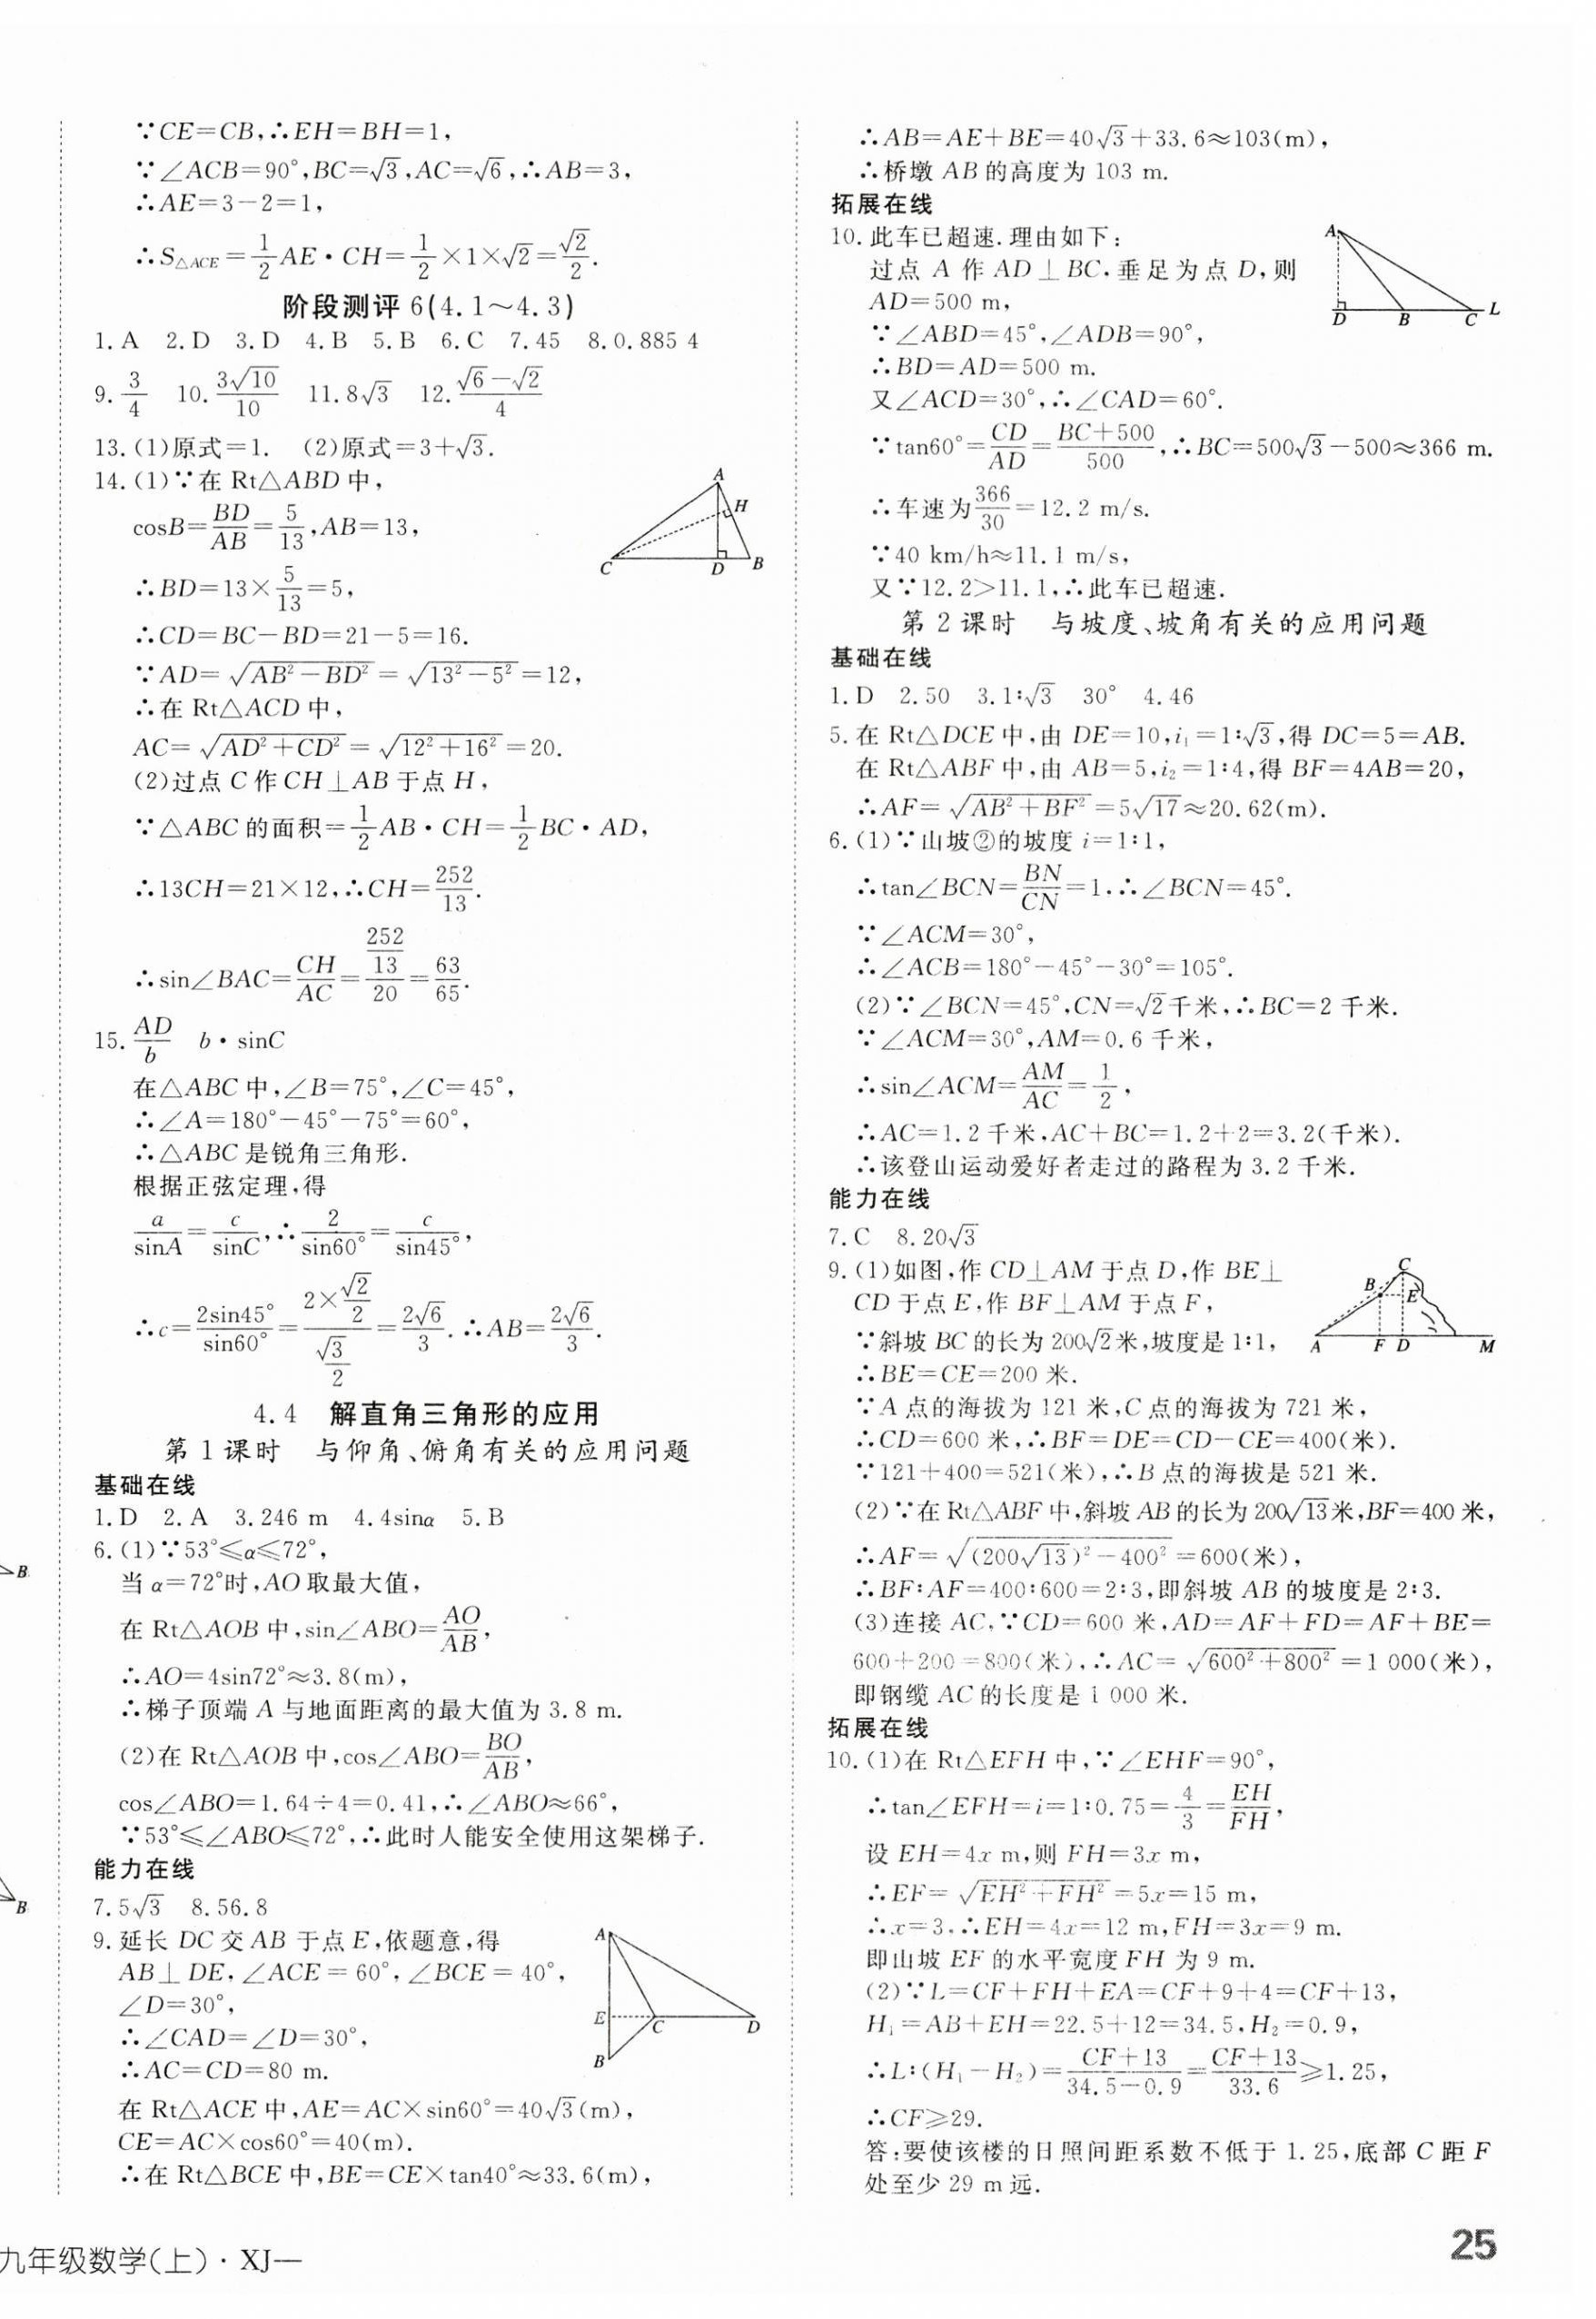 ∵CE=CB,∴EH=BH=1,
∵∠ACB=90°,BC=√3,AC=√6,∴AB=3,
∴AE=3-2=1,
∴S△ACE=1/2AE·CH=1/2×1×√2=√2/2.
阶段测评 6(4.1～4.3)
1.A 2.D 3.D 4.B 5.B 6.C 7.45 8.0.885 4
9.3/4 10.3√10/10 11.8√3 12.(√6-√2)/4
13.(1)原式=1. (2)原式=3+√3.
14.(1)∵在 Rt△ABD 中,
cosB=BD/AB=5/13,AB=13,
∴BD=13×5/13=5,
∴CD=BC-BD=21-5=16.
∵AD=√(AB²-BD²)=√(13²-5²)=12,
∴在 Rt△ACD 中,
AC=√(AD²+CD²)=√(12²+16²)=20.
(2)过点 C 作 CH⊥AB 于点 H,
∵△ABC 的面积=1/2AB·CH=1/2BC·AD,
∴13CH=21×12,∴CH=252/13.
∴sin∠BAC=CH/AC=(252/13)/20=63/65.
A
H
C
D
B
15.AD/b b·sinC
在△ABC 中,∠B=75°,∠C=45°,
∴∠A=180°-45°-75°=60°,
∴△ABC 是锐角三角形.
根据正弦定理,得
a/sinA=c/sinC,∴2/sin60°=c/sin45°,
∴c=2sin45°/sin60°=(2×√2/2)/(√3/2)=2√6/3.∴AB=2√6/3.
4.4 解直角三角形的应用
第 1 课时 与仰角、俯角有关的应用问题
基础在线
1.D 2.A 3.246 m 4.4sinα 5.B
6.(1)∵53°≤α≤72°,
当 α=72°时,AO 取最大值,
在 Rt△AOB 中,sin∠ABO=AO/AB,
∴AO=4sin72°≈3.8(m),
∴梯子顶端 A 与地面距离的最大值为 3.8 m.
(2)在 Rt△AOB 中,cos∠ABO=BO/AB,
cos∠ABO=1.64÷4=0.41,∴∠ABO≈66°,
∵53°≤∠ABO≤72°,∴此时人能安全使用这架梯子.
能力在线
7.5√3 8.56.8
9.延长 DC 交 AB 于点 E,依题意,得
AB⊥DE,∠ACE=60°,∠BCE=40°,
∠D=30°,
∴∠CAD=∠D=30°,
∴AC=CD=80 m.
在 Rt△ACE 中,AE=AC×sin60°=40√3(m),
CE=AC×cos60°=40(m).
∴在 Rt△BCE 中,BE=CE×tan40°≈33.6(m),
A
E
C
D
B
B
B
∴AB=AE+BE=40√3+33.6≈103(m),
∴桥墩 AB 的高度为 103 m.
拓展在线
10.此车已超速.理由如下:
过点 A 作 AD⊥BC,垂足为点 D,则
AD=500 m,
∵∠ABD=45°,∠ADB=90°,
∴BD=AD=500 m.
又∠ACD=30°,∴∠CAD=60°.
∵tan60°=CD/AD=(BC+500)/500,∴BC=500√3-500≈366 m.
∴车速为366/30=12.2 m/s.
∵40 km/h≈11.1 m/s,
又∵12.2>11.1,∴此车已超速.
A
D
B
C
L
第 2 课时 与坡度、坡角有关的应用问题
基础在线
1.D 2.50 3.1∶√3 30° 4.46
5.在 Rt△DCE 中,由 DE=10,i₁=1∶√3,得 DC=5=AB.
在 Rt△ABF 中,由 AB=5,i₂=1∶4,得 BF=4AB=20,
∴AF=√(AB²+BF²)=5√17≈20.62(m).
6.(1)∵山坡②的坡度 i=1∶1,
∴tan∠BCN=BN/CN=1,∴∠BCN=45°.
∵∠ACM=30°,
∴∠ACB=180°-45°-30°=105°.
(2)∵∠BCN=45°,CN=√2千米,∴BC=2 千米.
∵∠ACM=30°,AM=0.6 千米,
∴sin∠ACM=AM/AC=1/2,
∴AC=1.2 千米,AC+BC=1.2+2=3.2(千米).
∴该登山运动爱好者走过的路程为 3.2 千米.
能力在线
7.C 8.20√3
9.(1)如图,作 CD⊥AM 于点 D,作 BE⊥
CD 于点 E,作 BF⊥AM 于点 F,
∵斜坡 BC 的长为 200√2米,坡度是 1∶1,
∴BE=CE=200 米.
∵A 点的海拔为 121 米,C 点的海拔为 721 米,
∴CD=600 米,∴BF=DE=CD-CE=400(米).
∵121+400=521(米),∴B 点的海拔是 521 米.
(2)∵在 Rt△ABF 中,斜坡 AB 的长为 200√13米,BF=400 米,
∴AF=√((200√13)²-400²)=600(米),
∴BF∶AF=400∶600=2∶3,即斜坡 AB 的坡度是 2∶3.
(3)连接 AC,∵CD=600 米,AD=AF+FD=AF+BE=
600+200=800(米),∴AC=√(600²+800²)=1 000(米),
即钢缆 AC 的长度是 1 000 米.
C
B
E
A
F
D
M
拓展在线
10.(1)在 Rt△EFH 中,∵∠EHF=90°,
∴tan∠EFH=i=1∶0.75=4/3=EH/FH,
设 EH=4x m,则 FH=3x m,
∴EF=√(EH²+FH²)=5x=15 m,
∴x=3,∴EH=4x=12 m,FH=3x=9 m.
即山坡 EF 的水平宽度 FH 为 9 m.
(2)∵L=CF+FH+EA=CF+9+4=CF+13,
H₁=AB+EH=22.5+12=34.5,H₂=0.9,
∴L∶(H₁-H₂)=(CF+13)/(34.5-0.9)=(CF+13)/33.6≥1.25,
∴CF≥29.
答:要使该楼的日照间距系数不低于 1.25,底部 C 距 F
处至少 29 m 远.
九年级数学(上)·XJ—
25